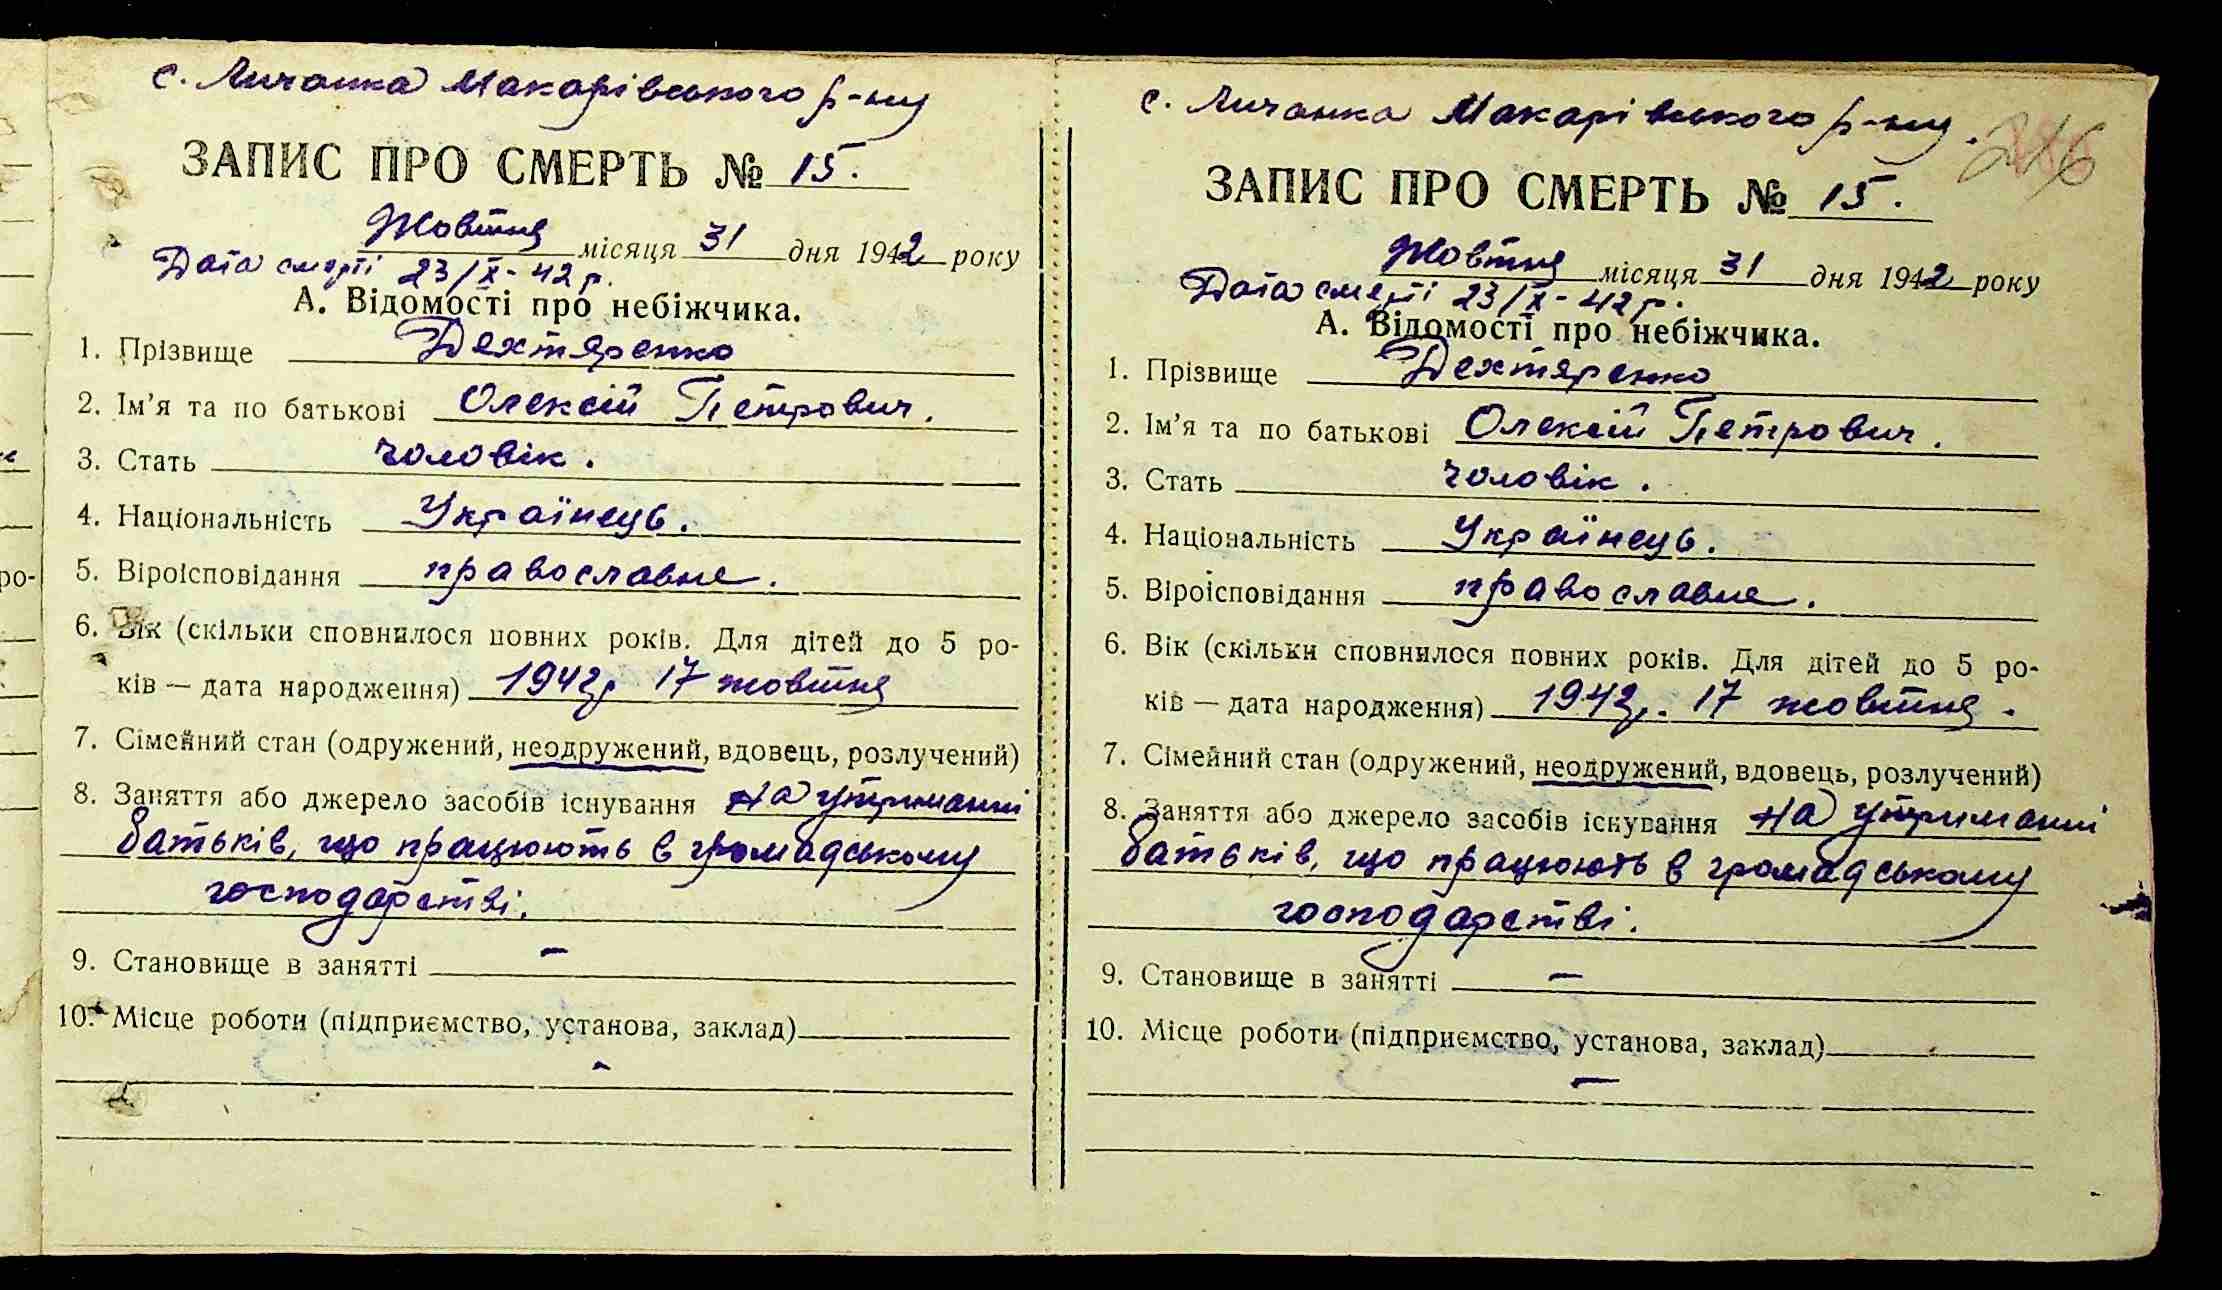 с. Личанка Макарівського р-ну
ЗАПИС ПРО СМЕРТЬ № 15.
Жовтня місяця 31 дня 1942 року
Дата смерті 23/X-42 р.
А. Відомості про небіжчика.
1. Прізвище Дехтяренко
2. Ім'я та по батькові Олексій Петрович.
3. Стать чоловік.
4. Національність Українець.
5. Віроісповідання православне.
6. Вік (скільки сповнилося повних років. Для дітей до 5 ро-
ків — дата народження) 1942р 17 жовтня
7. Сімейний стан (одружений, неодружений, вдовець, розлучений)
8. Заняття або джерело засобів існування на утриманні
батьків, що працюють в громадському
господарстві.
9. Становище в занятті –
10. Місце роботи (підприємство, установа, заклад)
-
с. Личанка Макарівського р-ну.
ЗАПИС ПРО СМЕРТЬ № 15.
Жовтня місяця 31 дня 1942 року
Дата смерті 23/X-42 р.
А. Відомості про небіжчика.
1. Прізвище Дехтяренко
2. Ім'я та по батькові Олексій Петрович.
3. Стать чоловік.
4. Національність Українець.
5. Віроісповідання православне.
6. Вік (скільки сповнилося повних років. Для дітей до 5 ро-
ків — дата народження) 1942р. 17 жовтня.
7. Сімейний стан (одружений, неодружений, вдовець, розлучений)
8. Заняття або джерело засобів існування на утриманні
батьків, що працюють в громадському
господарстві.
9. Становище в занятті –
10. Місце роботи (підприємство, установа, заклад)
–